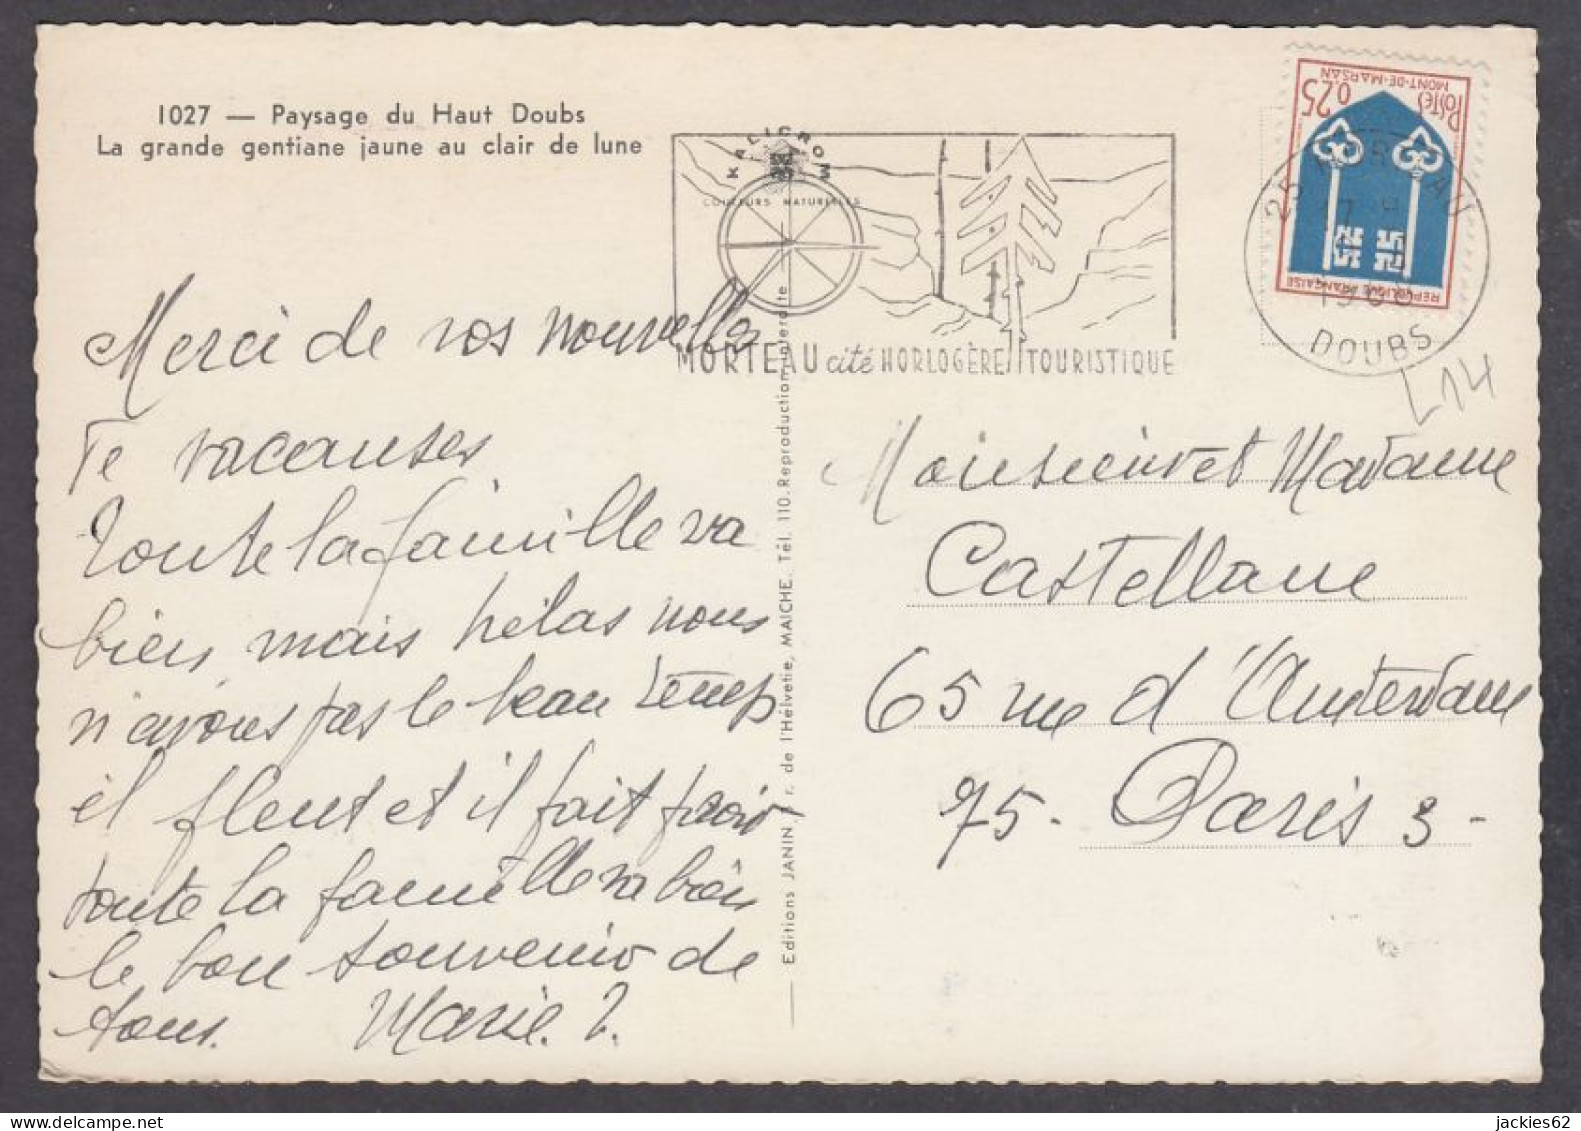 1027 — Paysage du Haut Doubs
La grande gentiane jaune au clair de lune
KALICROM
COULEURS NATURELLES
MORTEAU cité HORLOGÈRE TOURISTIQUE
POSTES
0,25
MONT-DE-MARSAN
REPUBLIQUE FRANÇAISE
25 MORTEAU
17 H
DOUBS
L14
Merci de vos nouvelles
Te vacanses
Toute la famille va
bien, mais hélas nous
n'avons pas le beau temps
il pleut et il fait froid
toute la famille va bien
le bon souvenir de
tous. Marie. J.
Editions JANIN, r. de l'Helvétie, MAICHE. Tél. 110. Reproduction interdite
Monsieur et Madame
Castellane
65 rue d'Amsterdam
75 - Paris 3 -
jackies62